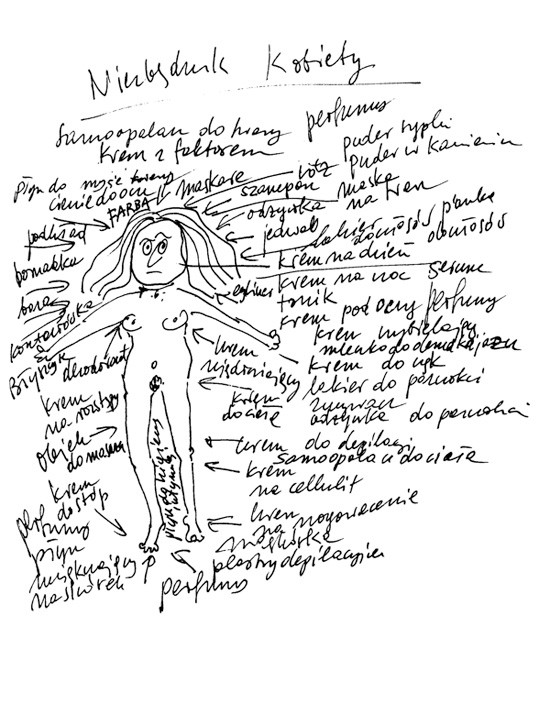 Niezbędnik Kobiety
Samoopalacz do twarzy
krem z faktorem
perfumy
puder sypki
puder w kamieniu
płyn do mycia twarzy
cienie do oczu
maskare
FARBA
róż
szampon
maska
odżywka na krem
jedwab
lakier do włosów pianka do włosów
krem na dzień
podkład
pomadka
baza
konturówka
błyszczyk
eyliner
krem na noc serum
tonik
krem pod oczy perfumy
krem wybielający
mleczko do demakijażu
krem do rąk
lakier do paznokci
zmywacz
odżywka do paznokci
dezodorant
krem ujędrniający
krem do ciała
krem na rozstępy
olejek do masażu
krem do depilacji
samoopalacz do ciała
krem na cellulit
płyn do higieny intymnej
krem do stóp
perfumy
płyn zmiękczający naskórek
krem na wyrastanie
plastry depilacyjne
perfumy